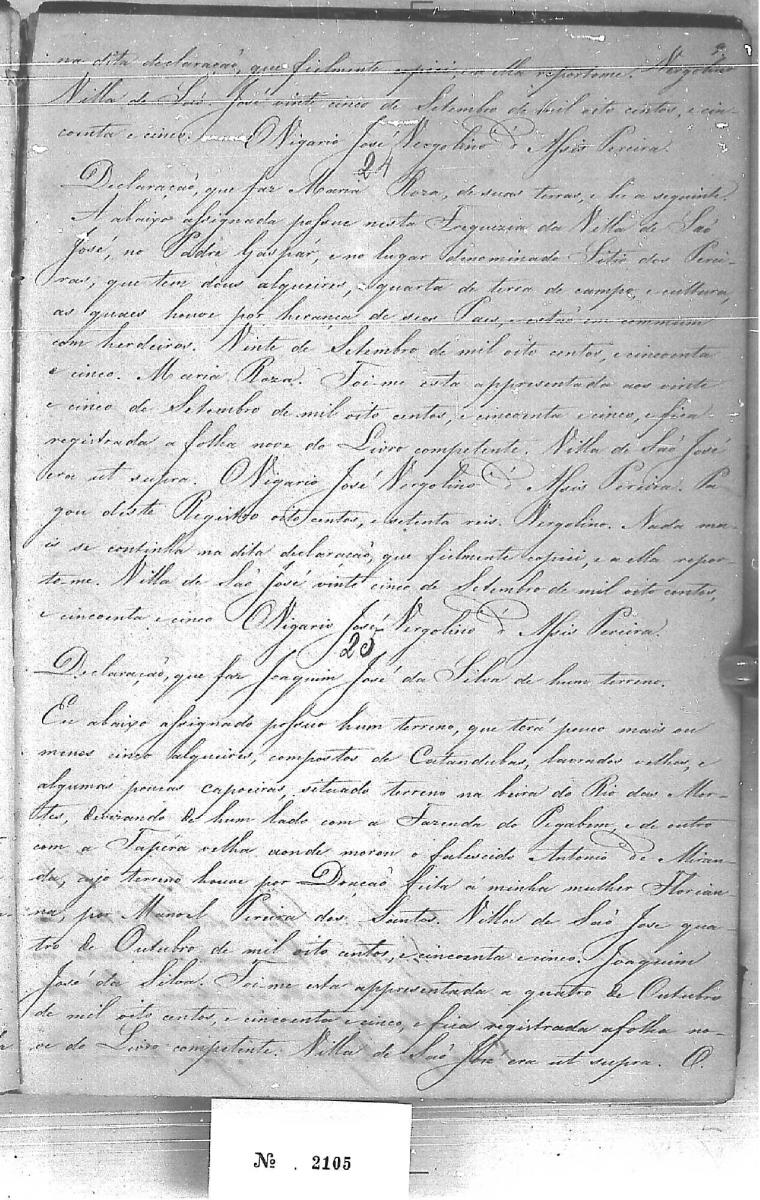 na dita declaração, que fielmente copiei, e a ella reportome. Vergolino
Villa de São José vinte cinco de Setembro de mil oito centos, e cin-
coenta e cinco. O Vigario José Vergolino d'Assis Pereira.
24
Declaração, que faz Maria Roza, de suas terras, e he a seguinte.
A abaixo assignada possue nesta Freguezia da Villa de São
José, no Padre Gaspár, e no lugar denominado Sitio dos Perei-
ras, que tem dous alqueires, quarta de terra de campo, e cultura,
as quaes houve por herança de seos Paes, e estão em commum
com herdeiros. Vinte de Setembro de mil oito centos, e cincoenta
e cinco. Maria Roza. Foi-me esta appresentada aos vinte
e cinco de Setembro de mil oito centos, e cincoenta e cinco, e fica
registrada a folha nove do Livro competente. Villa de São José
era ut supra. O Vigario José Vergolino d'Assis Pereira. Pa-
gou deste Registro oito centos, e setenta reis. Vergolino. Nada ma-
is se continha na dita declaração, que fielmente copiei, e a ella repor-
to-me. Villa de São José vinte cinco de Setembro de mil oito centos,
e cincoenta e cinco O Vigario José Vergolino d'Assis Pereira.
25
Declaração, que faz Joaquim José da Silva de hum terreno.
Eu abaixo assignado possuo hum terreno, que terá pouco mais ou
menos cinco alqueires, compostos de Catandubas, lavrados velhos, e
algumas poucas capoeiras, situado terreno na beira do Rio das Mor-
tes, devizando de hum lado com a Fazenda do Pegabem, e de outro
com a Tapéra velha aonde morou o falescido Antonio de Miran-
da, cujo terreno houve por Doação feita a minha mulher Florian-
na, por Manoel Pereira dos Santos. Villa de São Jose qua-
tro de Outubro de mil oito centos, e cincoenta e cinco. Joaquim
José da Silva. Foi-me esta appresentada a quatro de Outubro
de mil oito centos, e cincoenta e cinco, e fica registrada a folha no-
ve do Livro competente. Villa de São José era ut supra. O.
Nº . 2105